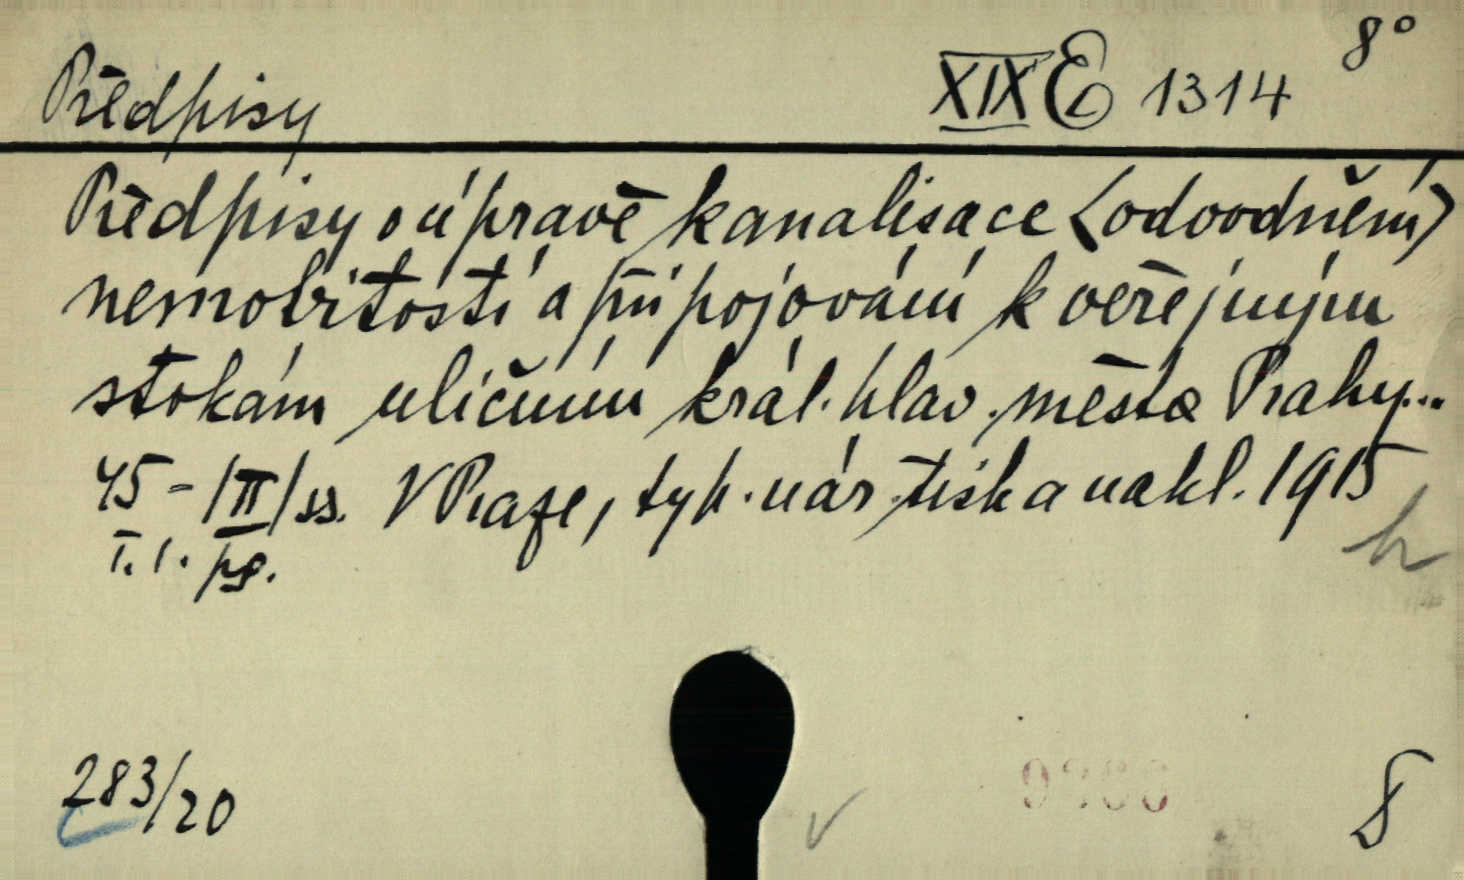 8°
Předpisy XIX E 1314
Předpisy o úpravě kanalisace (odvodnění)
nemovitostí a připojování k veřejným
stokám uličním král. hlav. města Prahy...
45 - |II| ss. V Praze, typ. nár. tisk a nakl. 1915
I. 1. pg.
283/20
8